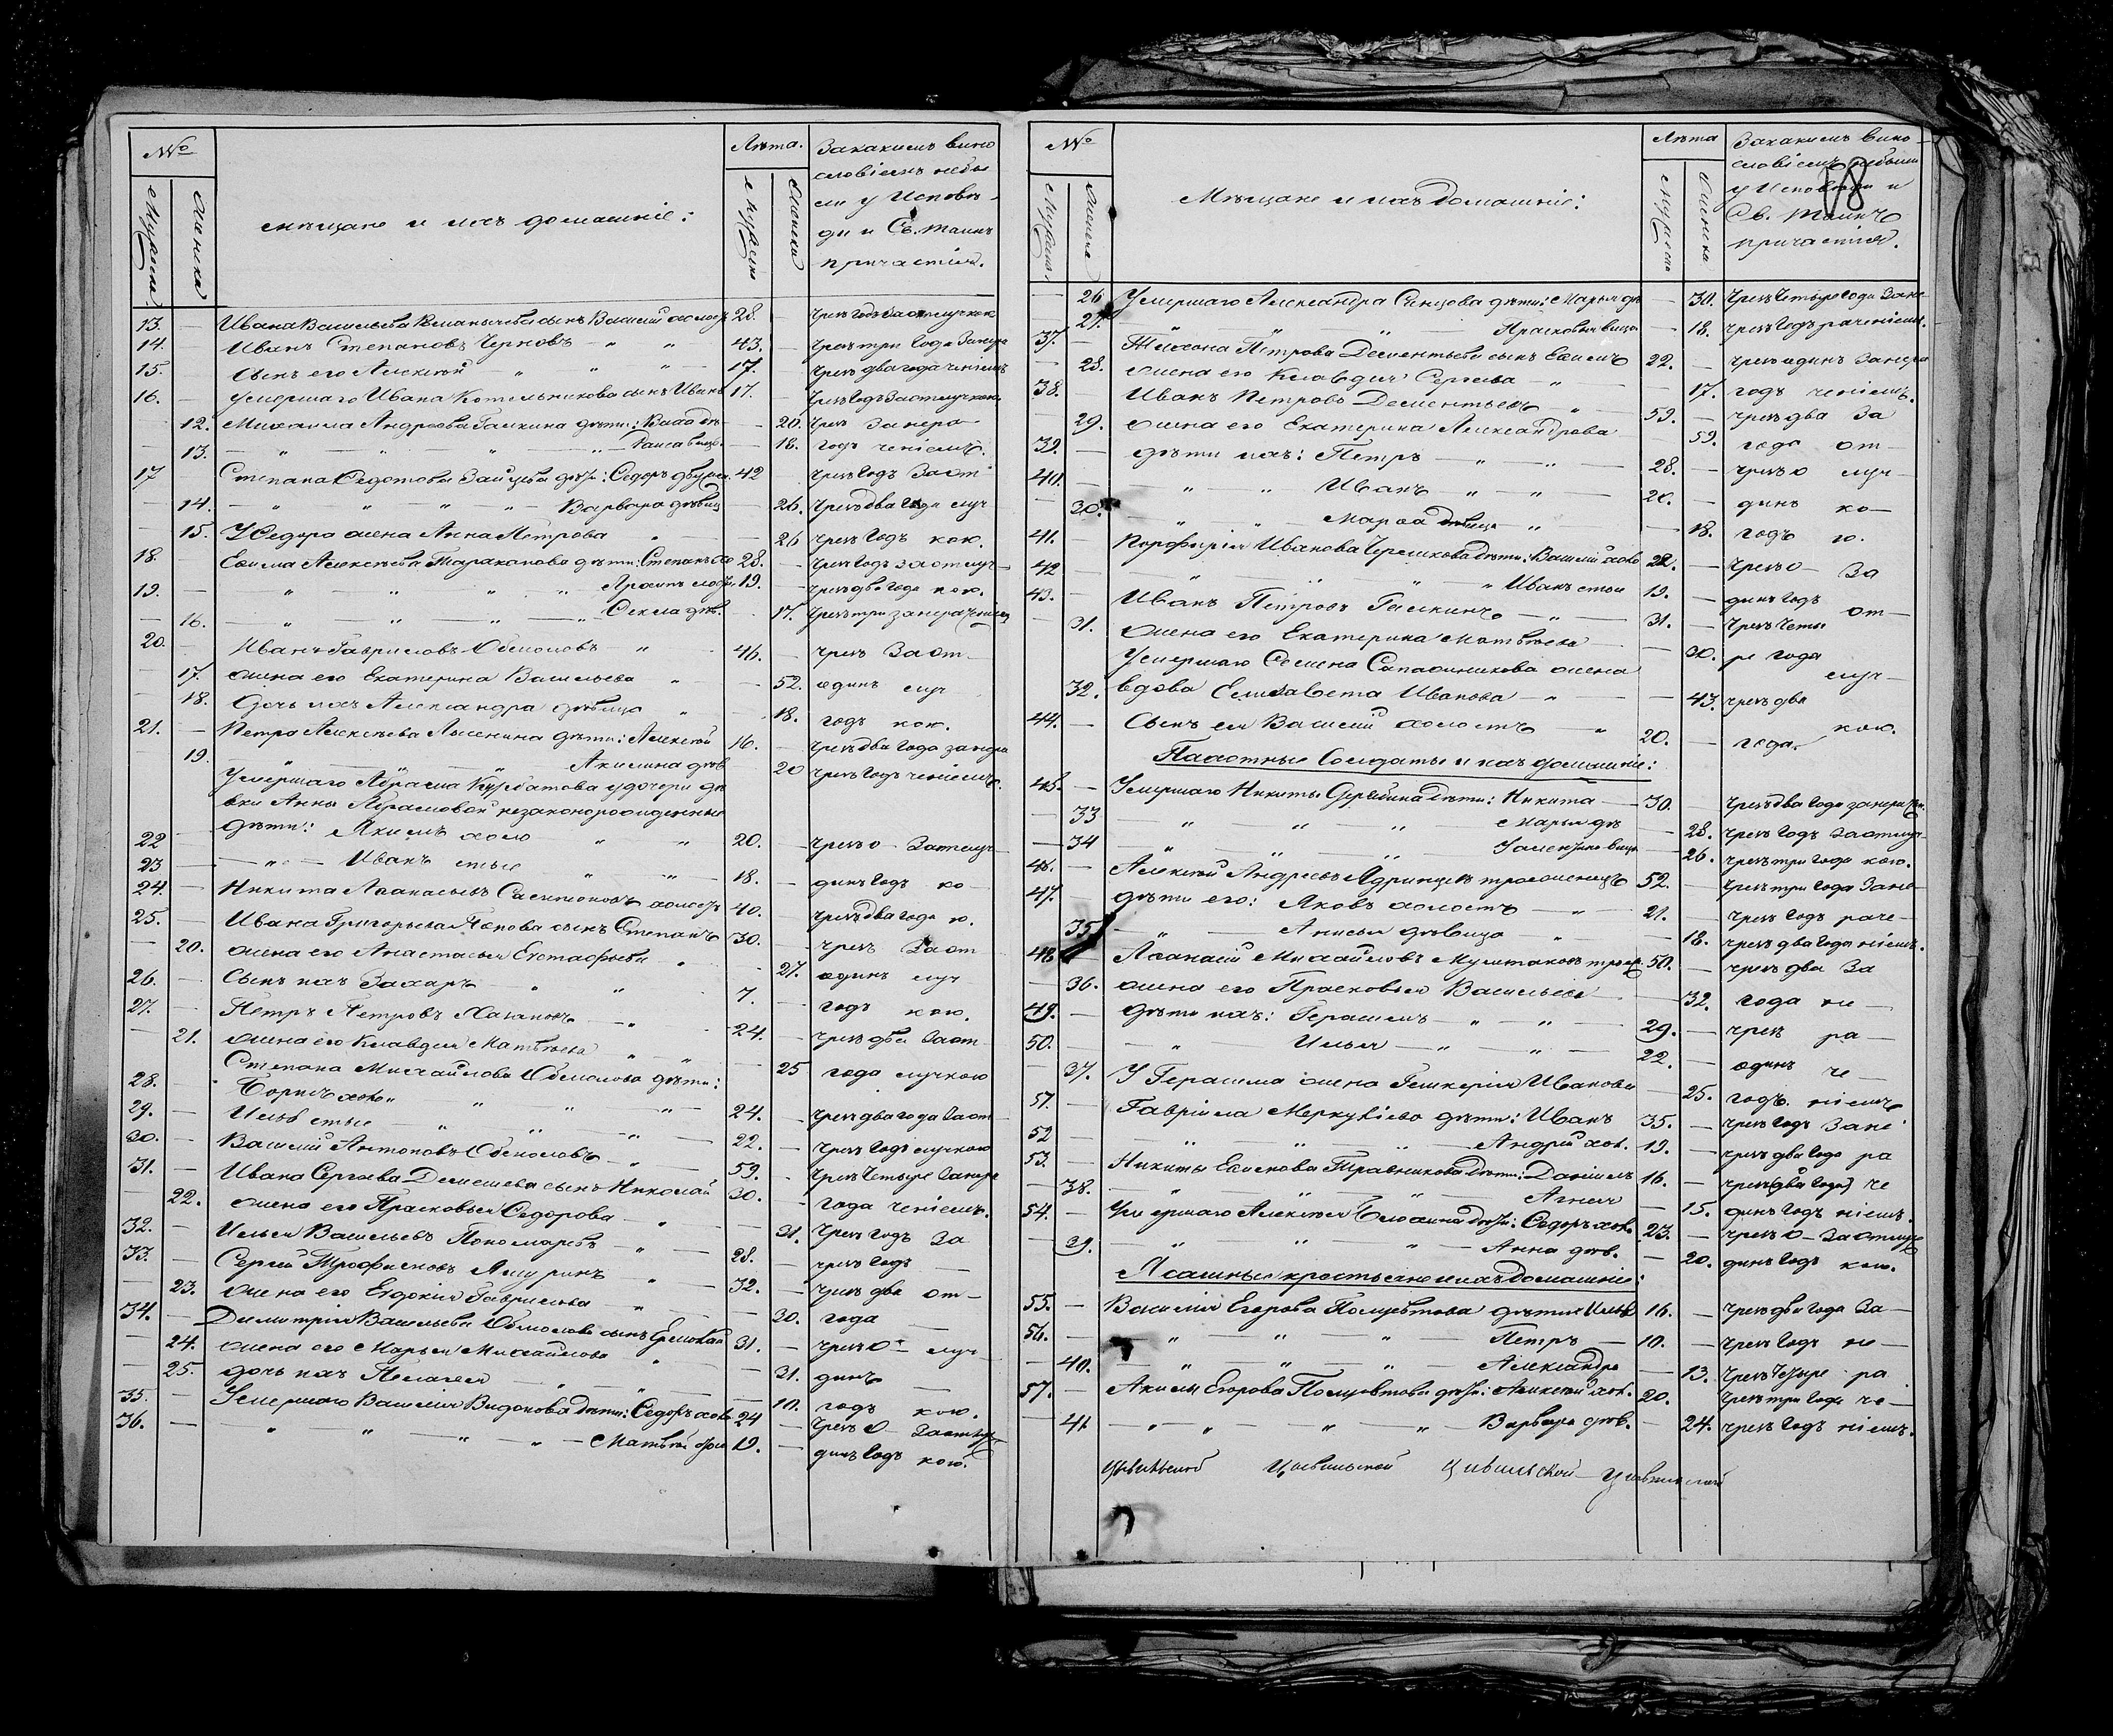 №
Лѣта.
Закакимъ вино
словіемъ небы
ли у Исповѣ-
ди и Св. таинъ
причастія.
Мужска
Женска
мѣщане и ихъ домашніе:
Мужска
Женска
13. — Ивана Васильева сынъ Василій холостъ 28. —
14. Иванъ Степановъ Черновъ — " " — 43. — чрезъ три года занера
15. Сынъ его Алексѣй " " " — 17. чрезъ два года ченіемъ
16. — Умершаго Ивана Котельникова сынъ Иванъ 17. чрезъ годъ заотлучкою
12. Михаила Андреева Галкина дѣти: — 20. чрезъ занера
13. — " — " — " — Раиса — 18. годъ ченіемъ.
17 Степана Федотова Зайцева дѣти: Федоръ 42 чрезъ годъ заот
14. — " " " " — Варвара дѣвица 26. чрезъ два года луч
15. У Федора жена Анна Петрова " — 26 чрезъ годъ кою.
18. Ефима Алексѣева Тараканова дѣти: Степанъ хо 28. — чрезъ годъ заотлуч—
19. — " " " " 19. — чрезъ два года кою.
— 16. — " " — " — " Фекла дѣв. 17. чрезъ три занераченіемъ
20. Иванъ Гавриловъ Обмоловъ — " 46. — чрезъ Заот—
17. жена его Екатерина Васильева " — 52. одинъ луч
18. Дочь ихъ Александра дѣвица " — 18. годъ кою.
21. — Петра Алексѣева дѣти: Алексѣй 16. — чрезъ два года занера
19. " " Акилина дѣв 20 чрезъ годъ ченіемъ.
Умершаго Абрама Курбатова у дочери дѣ
вки Анны Абрамовой незаконорожденные
22 — дѣти: Якимъ холо " " 20. — чрезъ о— Заотлуч—
23 — " — Иванъ стые " " 18. — динъ годъ ко—
24. — Никита Аѳанасьевъ холостъ 40. чрезъ два года ю.
25. — Ивана Григорьева Попова сынъ Степанъ 30. — чрезъ Заот
— 20. жена его Анастасья Евстафьева " — 27. одинъ луч
26. — Сынъ ихъ Захаръ — " " — 7. — годъ кою.
27. — Петръ Петровъ — " 24. — чрезъ два Заот
21. жена его Клавдія Матвѣева " " — 25 года лучкою
Степана Михайлова Обмолова дѣти:
28. Борисъ холо" " " " — 24. — чрезъ два года Заот—
29. — Илья стые — " " " — 22. — чрезъ годъ лучкою
30. — Василій Антоновъ Обмоловъ — " — 59. — чрезъ четыре Занера
31. — Ивана Сергѣева сынъ Николай 30. — года ченіемъ.
22. жена его Прасковья Федорова — " — 31. Чрезъ годъ За
32. — Илья Васильевъ Пономаревъ — " — 28. — чрезъ годъ —
33. — Сергѣй Трофимовъ " — 32. — чрезъ два от—
— 23. жена его Евдокія Гаврилова " — — 30. года —
34. — Димитрія Васильева Обмолова сынъ 31. — чрезъ о— луч—
24. жена его Марья Михайлова " — 31. динъ —
— 25. дочь ихъ Пелагея — " " — 10. годъ кою.
35. — Умершаго Василія Видонова дѣти: Федоръ холо 24 — чрезъ о— Заотлуч
36. — " " " " — Матвѣй 19. — динъ годъ кою.
№
Лѣта
Закакимъ вино—
словіемъ небыли
у Исповѣди и
Св. Таинъ
причастія.
18
Мужска
Женска
Мѣщане и ихъ домашніе:
Мужска
Женска
— 26 Умершаго Александра дѣти: Марья дѣ — 30. Чрезъ четыре года Зане—
27. — " " " Прасковья вица — 18. чрезъ годъ раченіемъ.
37. — Тихона Петрова Дементьева сынъ Ефимъ 22. — чрезъ одинъ Занера
28. жена его Клавдія Сергѣева — " — 17. годъ ченіемъ.
38. Иванъ Петровъ Дементьевъ " — 59. — чрезъ два За
29. жена его Екатерина Александрова — 59. года от—
39. — дѣти ихъ: Петръ — " — " — 28. — чрезъ о луч—
40. — " " Иванъ — " — " — 20. — динъ ко—
30. — " " Марѳа дѣвица " — 18. годъ ю.
41. — Порфирія Иванова дѣти: Василій холо 22. — Чрезъ о— За
42 " " " " Иванъ стые 19. — динъ годъ
43. — Иванъ Петровъ Галкинъ — " — 31. — Чрезъ четы от—
— 31. жена его Екатерина Матвѣева — 30. ре года
Умершаго Семена Сапожникова жена луч—
32. вдова Елизавета Иванова " — — 43. чрезъ два
44. — Сынъ ея Василій холостъ — " 20. — года. кою.
Пахотные Солдаты и ихъ домашніе:
45. — Умершаго Никиты дѣти: Никита — 30. — Чрезъ два года занерачен.
— 33 — " " " Марья дѣ — 28. чрезъ годъ Заотлуч
— 34 " " " вица — 26. чрезъ три года кою.
46. — Алексѣй Андреевъ Ядринцевъ троеженецъ 52. — Чрезъ три года Зане—
47. — дѣти его: Яковъ холостъ — " — 21. — чрезъ годъ раче—
35 — " — Анисья дѣвица " — 18. чрезъ два года ніемъ.
48 Аѳанасій Михайловъ 50. — чрезъ два За
— 36. жена его Прасковья Васильева — 32. года не—
49. — Дѣти ихъ: Герасимъ — " — " — 29. — чрезъ ра—
50. — " Илья — " — " — 22. — одинъ че—
— 37. У Герасима жена Гликерія Иванова — 25. годъ. ніемъ
51. — Гавріила Меркульева дѣти: Иванъ 35. — чрезъ годъ Зане
52 — " " " Андрей хол. 19. — чрезъ два года ра
53. — Никиты Травникова дѣти: Даніилъ 16. — чрезъ (два года) че
— 38. " " " Агнія — 15. динъ годъ ніемъ.
54. — Умершаго Алексѣя дѣти: Федоръ хол. 23. — Чрезъ о— Заотлуч
— 39. " " " — Анна дѣв. — 20. динъ годъ кою.
Ясашные крестьяне и ихъ домашніе:
55. — Василія Егорова дѣти: Илья 16. — Чрезъ два года За—
56. — " — " " — Петръ — 10. — Чрезъ годъ не—
— 40. — " — " — " — Александра — 13. Чрезъ четыре ра
57. — Акилы Егорова дѣти: Алексѣй хол. 20. Чрезъ три года че—
— 41 — " " " " — Варвара дѣв. — 24. чрезъ годъ ніемъ.
Цивильской Цивильской Цивильской Цивильской